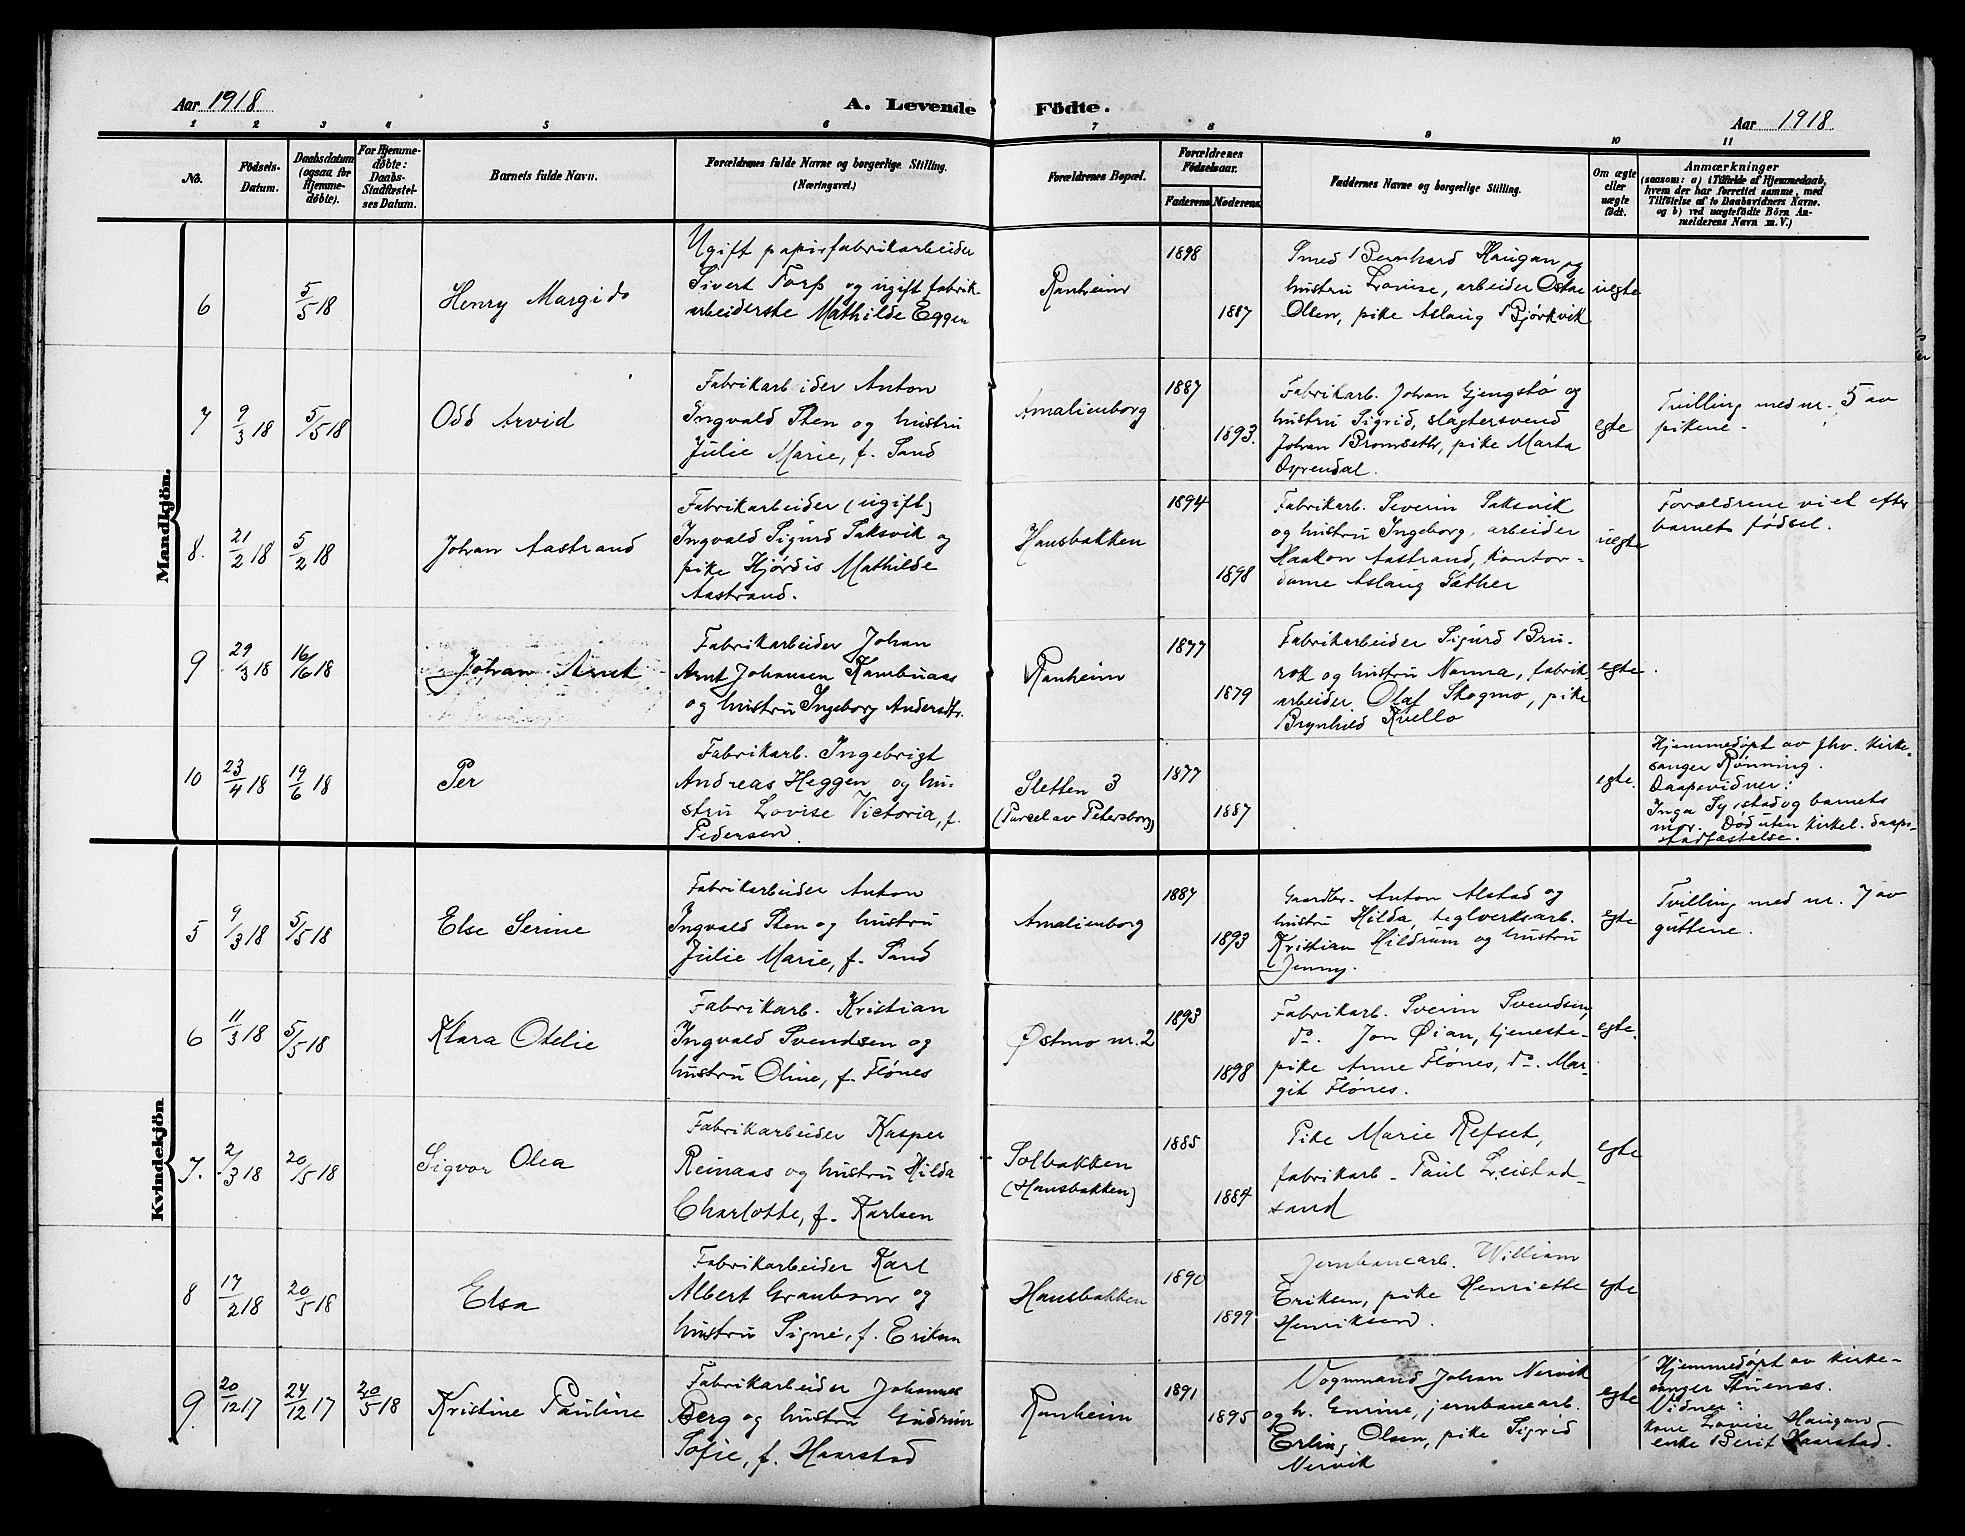 Aar 1918
A. Levende Födte.
Aar 1918
1 2 3 4 5 6 7 8 9 10 11
No.
Födsels-
Datum.
Daabsdatum
(ogsaa for
Hjemme-
döbte).
For Hjemme-
döbte:
Daabs-
Stadfæstel-
ses Datum.
Barnets fulde Navn.
Forældrenes fulde Navne og borgerlige Stilling.
(Næringsvei.)
Forældrenes Bopæl.
Forældrenes
Födselsaar.
Faderens Moderens
Faddernes Navne og borgerlige Stilling.
Om ægte
eller
uægte
födt.
Anmærkninger
(saasom: a) i Tilfælde af Hjemmedaab,
hvem der har forrettet samme, med
Tilföielse af to Daabsvidners Navne.
og b) ved uægtefödte Börn An-
melderens Navn m. V.)
Mandkjön.
6
5/5 18
Henry Margido
Ugift papirfabrikarbeider
Sivert Torp og ugift fabrik-
arbeiderske Mathilde Eggen
Ranheim
1898
1887
Smed Bernhard Haugan og
hustru Lovise, arbeider Ostar
Olsen, pike Aslaug Bjørkvik
uegte
7
9/3 18
5/5 18
Odd Arvid
Fabrikarbeider Anton
Ingvald Sten og hustru
Julie Marie, f. Sand
Amalienborg
1887
1893.
Fabrikarb. Johan Gjengstø og
hustru Sigrid, slagtersvend
Johan Bromseth, pike Marta
Dyrendal.
egte
Tvilling med nr. 5 av
pikene.
8.
21/2 18
5/2 18
Johan Aastrand
Fabrikarbeider (ugift)
Ingvald Sigurd Saksvik og
pike Hjørdis Mathilde
Aastrand.
Hansbakken
1894
1898
Fabrikarb. Severin Saksvik
og hustru Ingeborg, arbeider
Haakon Aastrand, kontor-
dame Aslaug Sæther
uegte
Forældrene viet efter
barnets fødsel.
9
29/3 18
16/6 18
Johan Arnt
Fabrikarbeider Johan
Arnt Johansen Kambuaas
og hustru Ingeborg Andersdtr.
Ranheim
1877
1879
Fabrikarbeider Sigurd Bru-
rok og hustru Nanna, fabrik-
arbeider Olaf Skogmo, pike
Brynhild Kvello
egte.
10
23/4 18
19/6 18
Per
Fabrikarb. Ingebrigt
Andreas Heggen og hu-
stru Lovise Victoria, f.
Pedersen.
Sletten 3
(Parsel av Petersborg)
1877
1887
egte.
Hjemmedøpt av fhv. kirke-
sanger Rønning.
Daapsvidner:
Inga Systad og barnets
mor. Død uten kirkel. daaps-
stadfæstelse.
Kvindekjön
5
9/3 18
5/5 18
Else Serine
Fabrikarbeider Anton
Ingvald Sten og hustru
Julie Marie, f. Sand
Amalienborg
1887
1893
Gaardbr. Anton Alstad og
hustru Hilda, teglverksarb.
Kristian Hildrum og hustru
Jenny.
egte
Tvilling med nr. 7 av
guttene.
6
11/3 18
5/5 18
Klara Otelie
Fabrikarb. Kristian
Ingvald Svendsen og
hustru Oline, f. Flønes
Østmo nr. 2
1893
1898
Fabrikarb. Sverin Svendsen
do. Jon Øian, tjeneste-
pike Anne Flønes, do. Mar-
git Flønes.
egte.
7.
2/3 18
20/5 18
Sigvor Olea
Fabrikarbeider Kasper
Reinaas og hustru Hilda
Charlotte, f. Karlsen
Solbakken
(Hansbakken)
1885
1884
Pike Marie Refset,
fabrikarb. Paul Leistad-
sand
egte
8
17/2 18
20/5 18
Elsa
Fabrikarbeider Karl
Albert Graubner og
hustru Signe, f. Eriksen
Hansbakken
1890
1899
Jernbanearb. William
Eriksen, pike Henriette
Henriksen.
egte
9.
20/12 17
24/12 17
20/5 18
Kristine Pauline
Fabrikarbeider Johannes
Berg og hustru Gudrun
Sofie, f. Haarstad
Ranheim
1891
1895
Vognmand Johan Nervik
og h. Enrine, jernbanearb.
Erling Olsen, pike Sigrid
Nervik
egte
Hjemmedøpt av kirke-
sanger Stuenæs.
Vidner:
kone Lovise Haugan
enke Berit Haarstad.